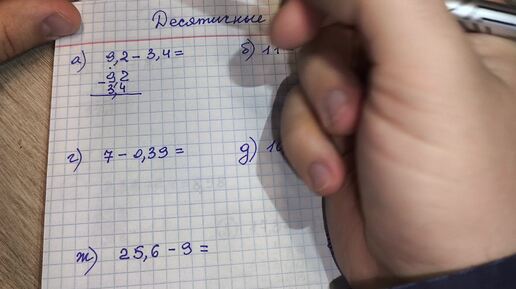 Десятичные
а) 9,2 - 3,4 = б) 11
- 9,2
3,4
г) 7 - 0,39 = д) 10
ж) 25,6 - 9 =